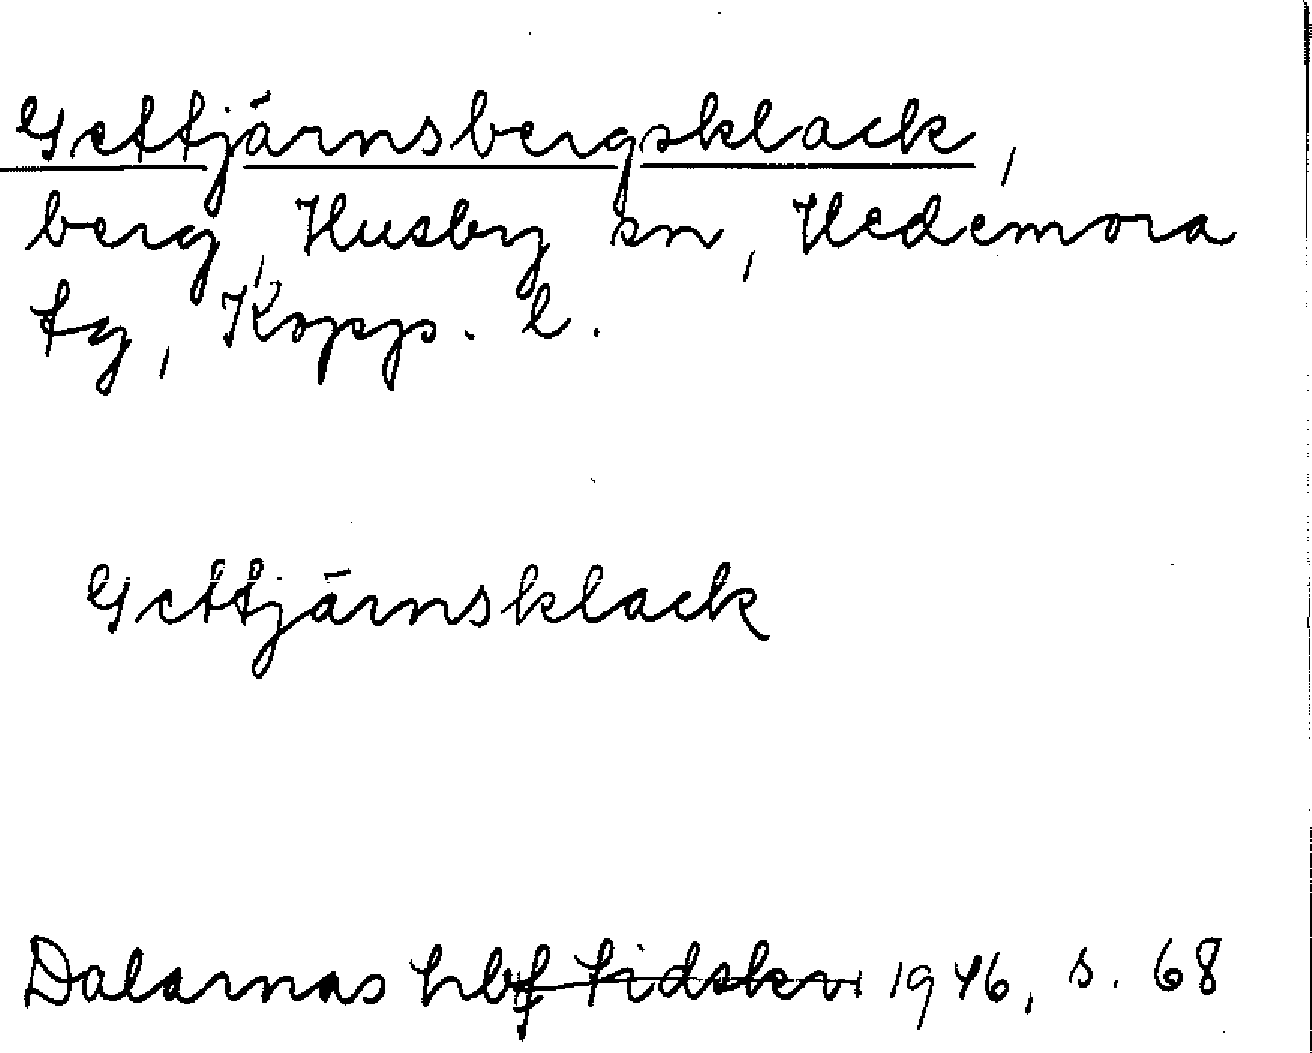 Gettjärnsbergsklack,
berg, Husby sn, Hedemora
tg, Kopp. l.
Gettjärnsklack
Dalarnas hbf tidskr 1946, s. 68